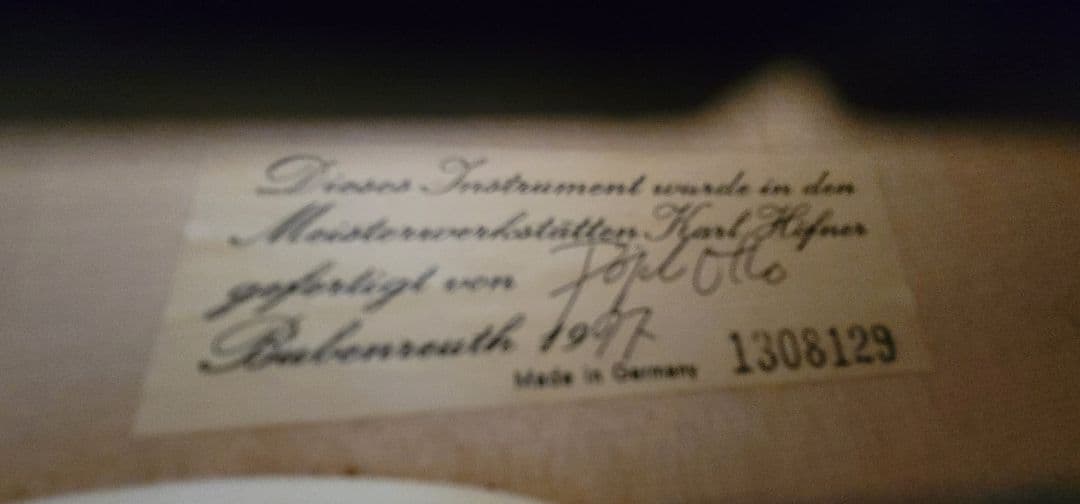 Dieses Instrument wurde in den
Meisterwerkstätten Karl Höfner
gefertigt von Otto
Bubenreuth 1997
Made in Germany 1308129